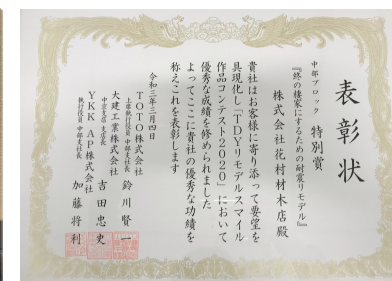 表彰状
中部ブロック 特別賞
『終の棲家にするための耐震リモデル』
株式会社花村材木店殿
貴社はお客様に寄り添って要望を
具現化し「TDYリモデルスマイル
作品コンテスト2020」において
優秀な成績を修められました
よってここに貴社の優秀な功績を
称えこれを表彰します
令和三年三月四日
TOTO株式会社
上席執行役員 中部支社長 鈴川賢一
大建工業株式会社
中京支店 支店長 吉田忠史
YKK AP株式会社
執行役員 中部支社長 加藤将利